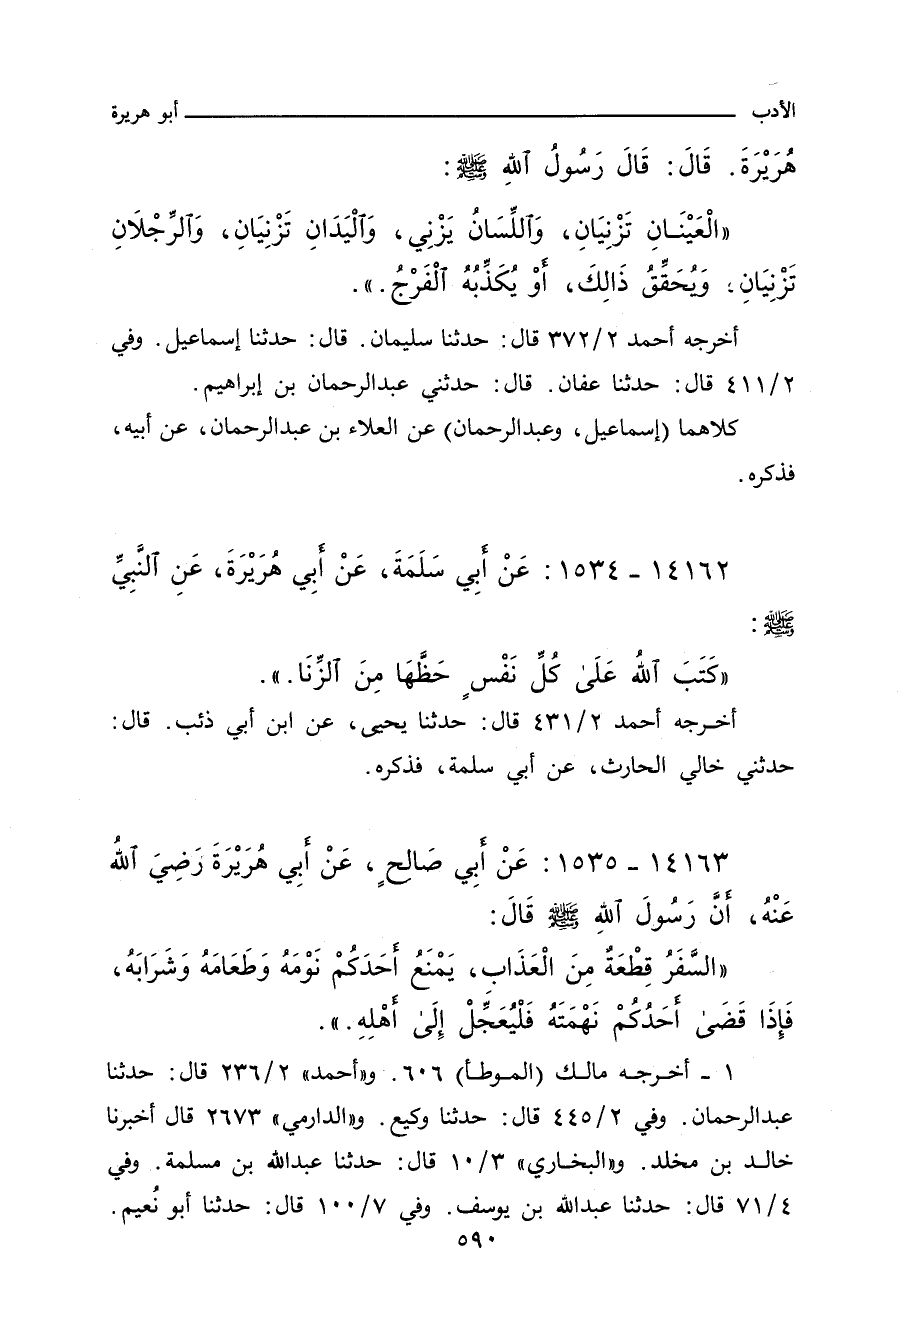 الأدب ــــــــــ أبو هريرة
هُرَيْرَةَ. قَالَ: قَالَ رَسُولُ ٱللهِ ﷺ:
«الْعَيْنَـانِ تَزْنِيَانِ، وَٱللِّسَانُ يَزْنِي، وَٱلْيَدَانِ تَزْنِيَانِ، وَٱلرِّجْلَانِ
تَزْنِيَانِ، وَيُحَقِّقُ ذَالِكَ، أَوْ يُكَذِّبُهُ ٱلْفَرْجُ.».
أخرجه أحمد ٣٧٢/٢ قال: حدثنا سليمان. قال: حدثنا إسماعيل. وفي
٤١١/٢ قال: حدثنا عفان. قال: حدثني عبدالرحمان بن إبراهيم.
كلاهما (إسماعيل، وعبدالرحمان) عن العلاء بن عبدالرحمان، عن أبيه،
فذكره.
١٤١٦٢ ـ ١٥٣٤: عَنْ أَبِي سَلَمَةَ، عَنْ أَبِي هُرَيْرَةَ، عَنِ ٱلنَّبِيِّ
ﷺ:
«كَتَبَ ٱللهُ عَلَىٰ كُلِّ نَفْسٍ حَظَّهَا مِنَ ٱلزِّنَا.».
أخـرجه أحمد ٤٣١/٢ قال: حدثنا يحيى، عن ابن أبي ذئب. قال:
حدثني خالي الحارث، عن أبي سلمة، فذكره.
١٤١٦٣ ـ ١٥٣٥: عَنْ أَبِي صَالِحٍ، عَنْ أَبِي هُرَيْرَةَ رَضِيَ ٱللهُ
عَنْهُ، أَنَّ رَسُولَ ٱللهِ ﷺ قَالَ:
«السَّفَرُ قِطْعَةٌ مِنَ الْعَذَابِ، يَمْنَعُ أَحَدَكُمْ نَوْمَهُ وَطَعَامَهُ وَشَرَابَهُ،
فَإِذَا قَضَىٰ أَحَدُكُمْ نَهْمَتَهُ فَلْيُعَجِّلْ إِلَىٰ أَهْلِهِ.».
١ ـ أخـرجـه مالـك (المـوطـأ) ٦٠٦. و«أحمد» ٢٣٦/٢ قال: حدثنا
عبدالرحمان. وفي ٤٤٥/٢ قال: حدثنا وكيع. و«الدارمي» ٢٦٧٣ قال أخبرنا
خالـد بن مخلد. و«البخـاري» ١٠/٣ قال: حدثنا عبدالله بن مسلمة. وفي
٧١/٤ قال: حدثنا عبدالله بن يوسف. وفي ١٠٠/٧ قال: حدثنا أبو نُعيم.
٥٩٠